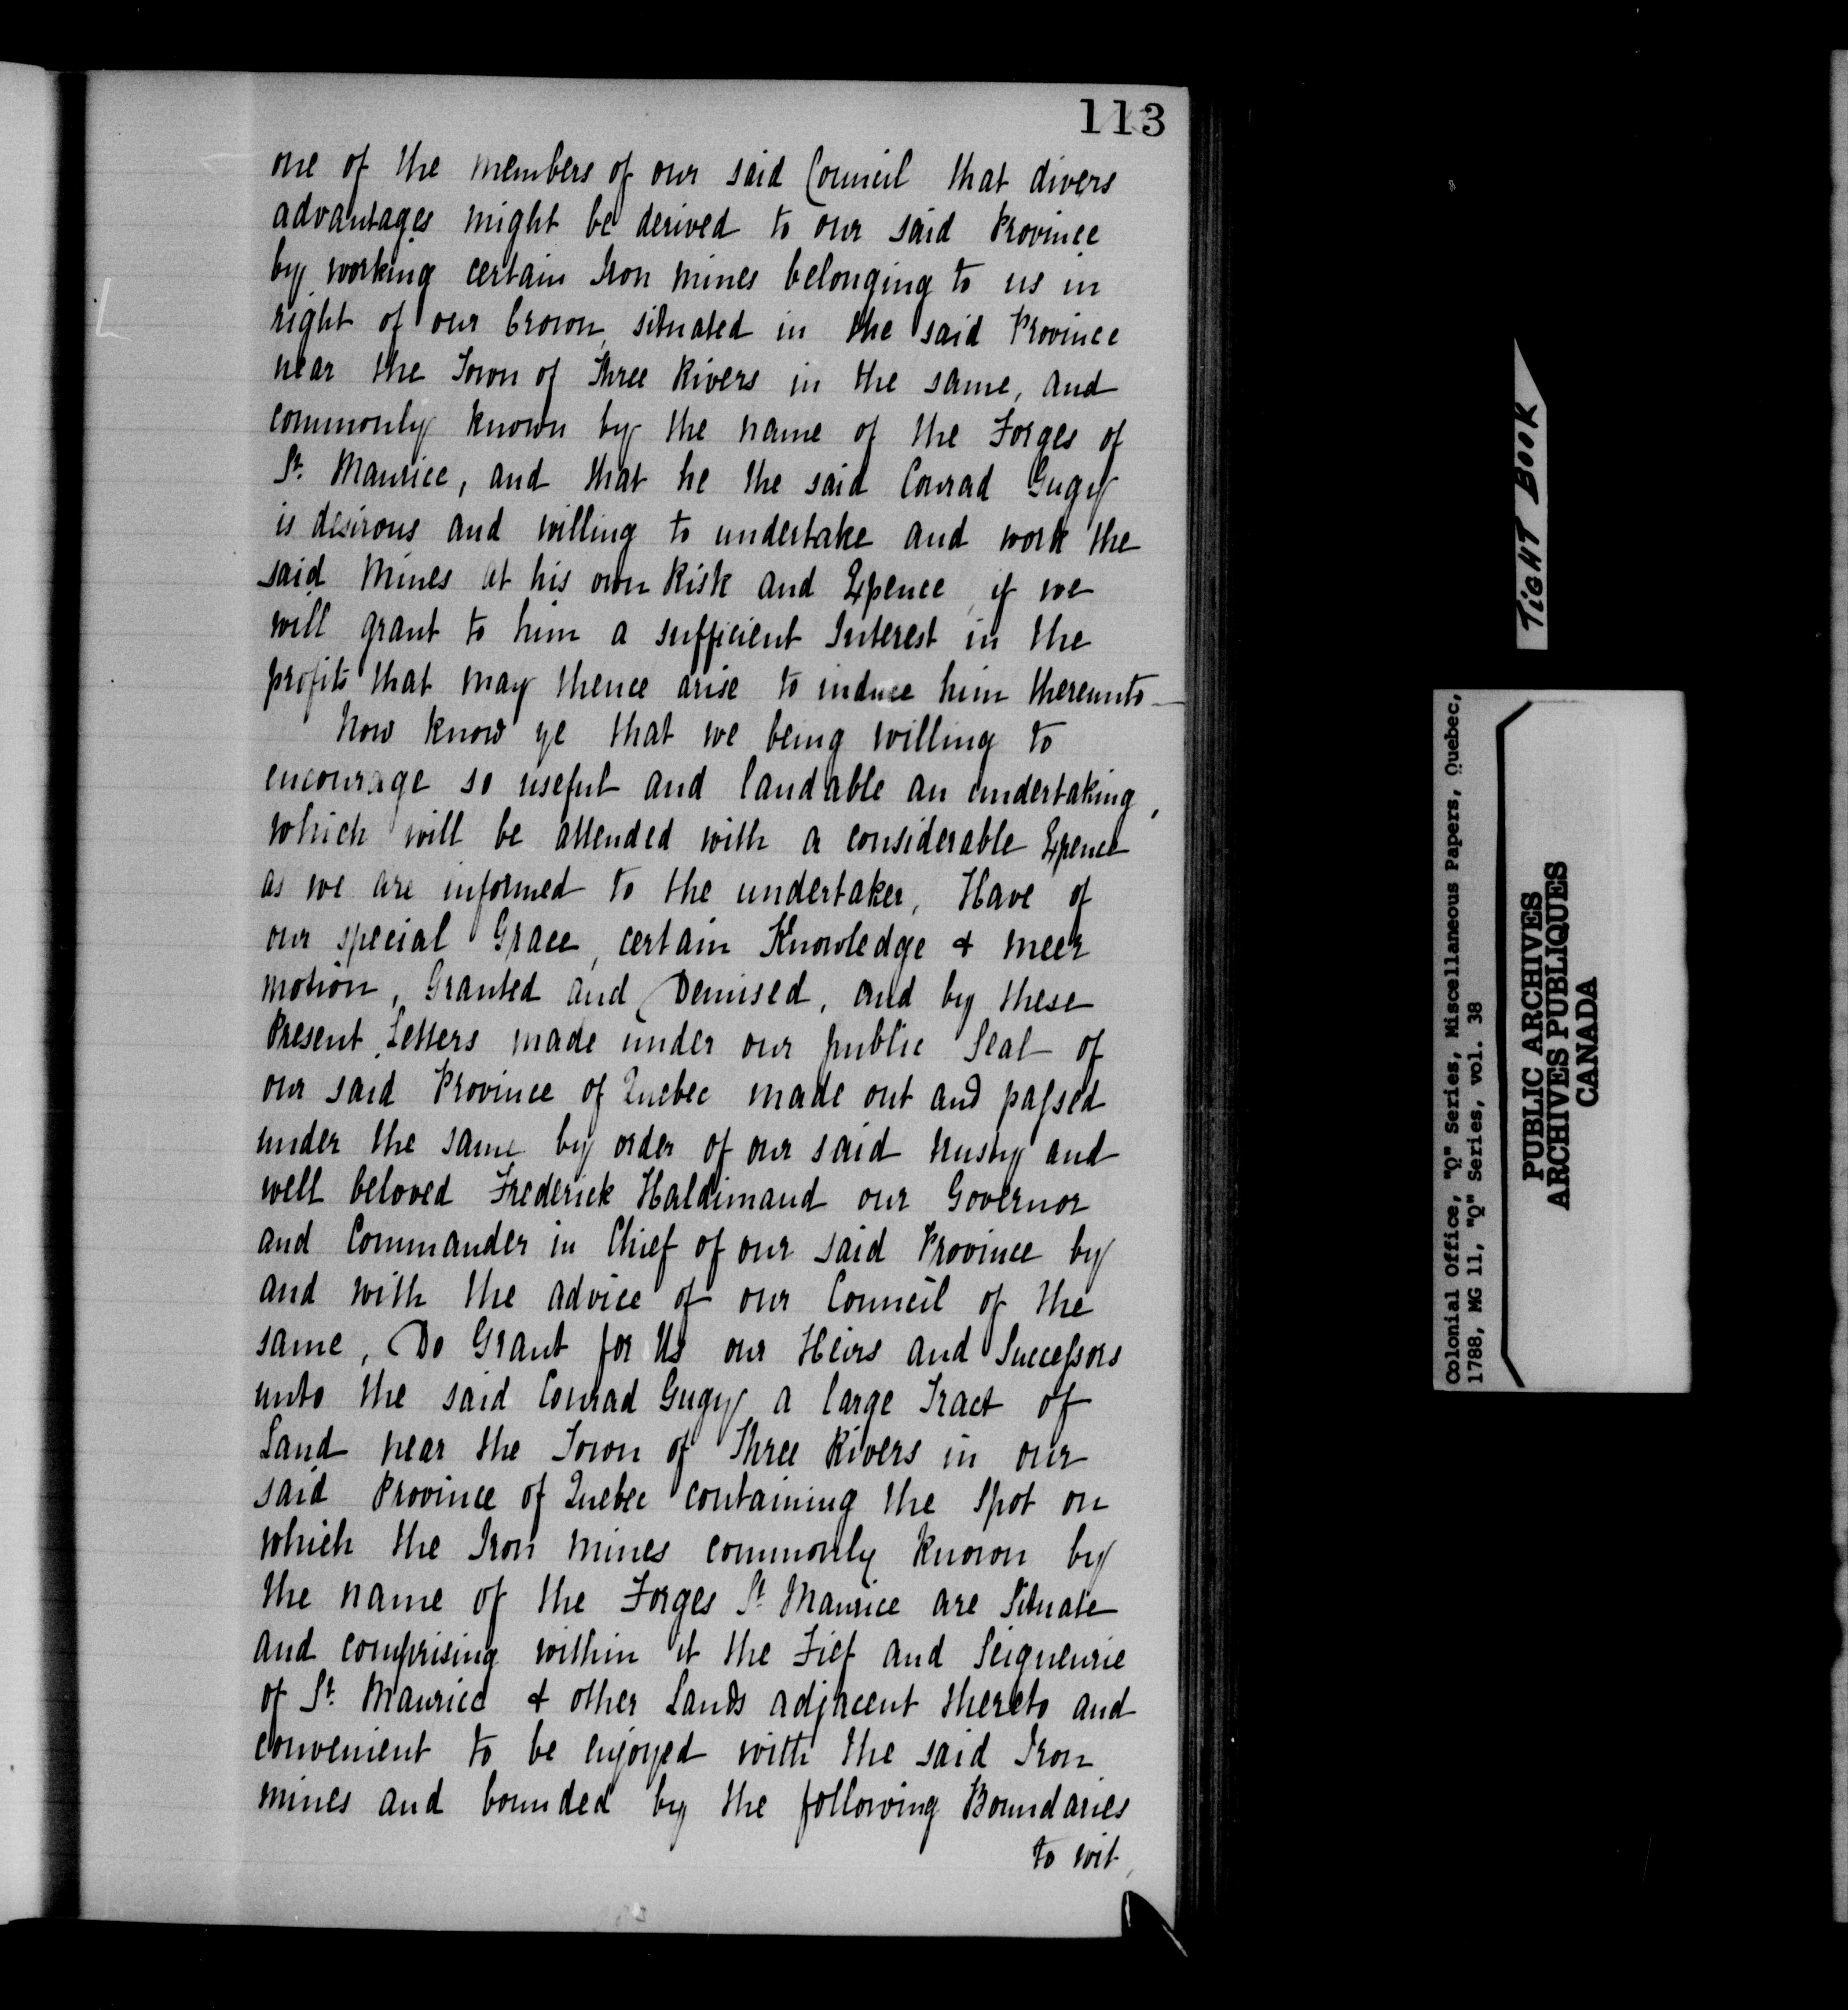 113
one of the members of our said Council that divers
advantages might be derived to our said Province
by working certain Iron mines belonging to us in
right of our Crown, situated in the said Province
near the Town of Three Rivers in the same, and
commonly known by the name of the Forges of
St. Maurice, and that he the said Conrad Gugy
is desirous and willing to undertake and work the
said Mines at his own Risk and Expence, if we
will grant to him a sufficient Interest in the
profits that may thence arise to induce him thereunto—
Now know ye that we being willing to
encourage so useful and laudable an undertaking,
which will be attended with a considerable Expence
as we are informed to the undertaker, Have of
our special Grace, certain Knowledge & meer
motion, Granted and Demised, and by these
Present Letters made under our public Seal of
our said Province of Quebec made out and passed
under the same by order of our said trusty and
well beloved Frederick Haldimand our Governor
and Commander in Chief of our said Province by
and with the advice of our Council of the
same, Do Grant for Us our Heirs and Successors
unto the said Conrad Gugy a large Tract of
Land near the Town of Three Rivers in our
said Province of Quebec containing the Spot on
which the Iron mines commonly known by
the name of the Forges St. Maurice are Situate
and comprising within it the Fief and Seigneurie
of St. Maurice & other Lands adjacent thereto and
convenient to be enjoyed with the said Iron
mines and bounded by the following Boundaries
to wit,
TIGHT BOOK
Colonial Office, "Q" Series, Miscellaneous Papers, Quebec,
1788, MG 11, "Q" Series, vol. 38
PUBLIC ARCHIVES
ARCHIVES PUBLIQUES
CANADA